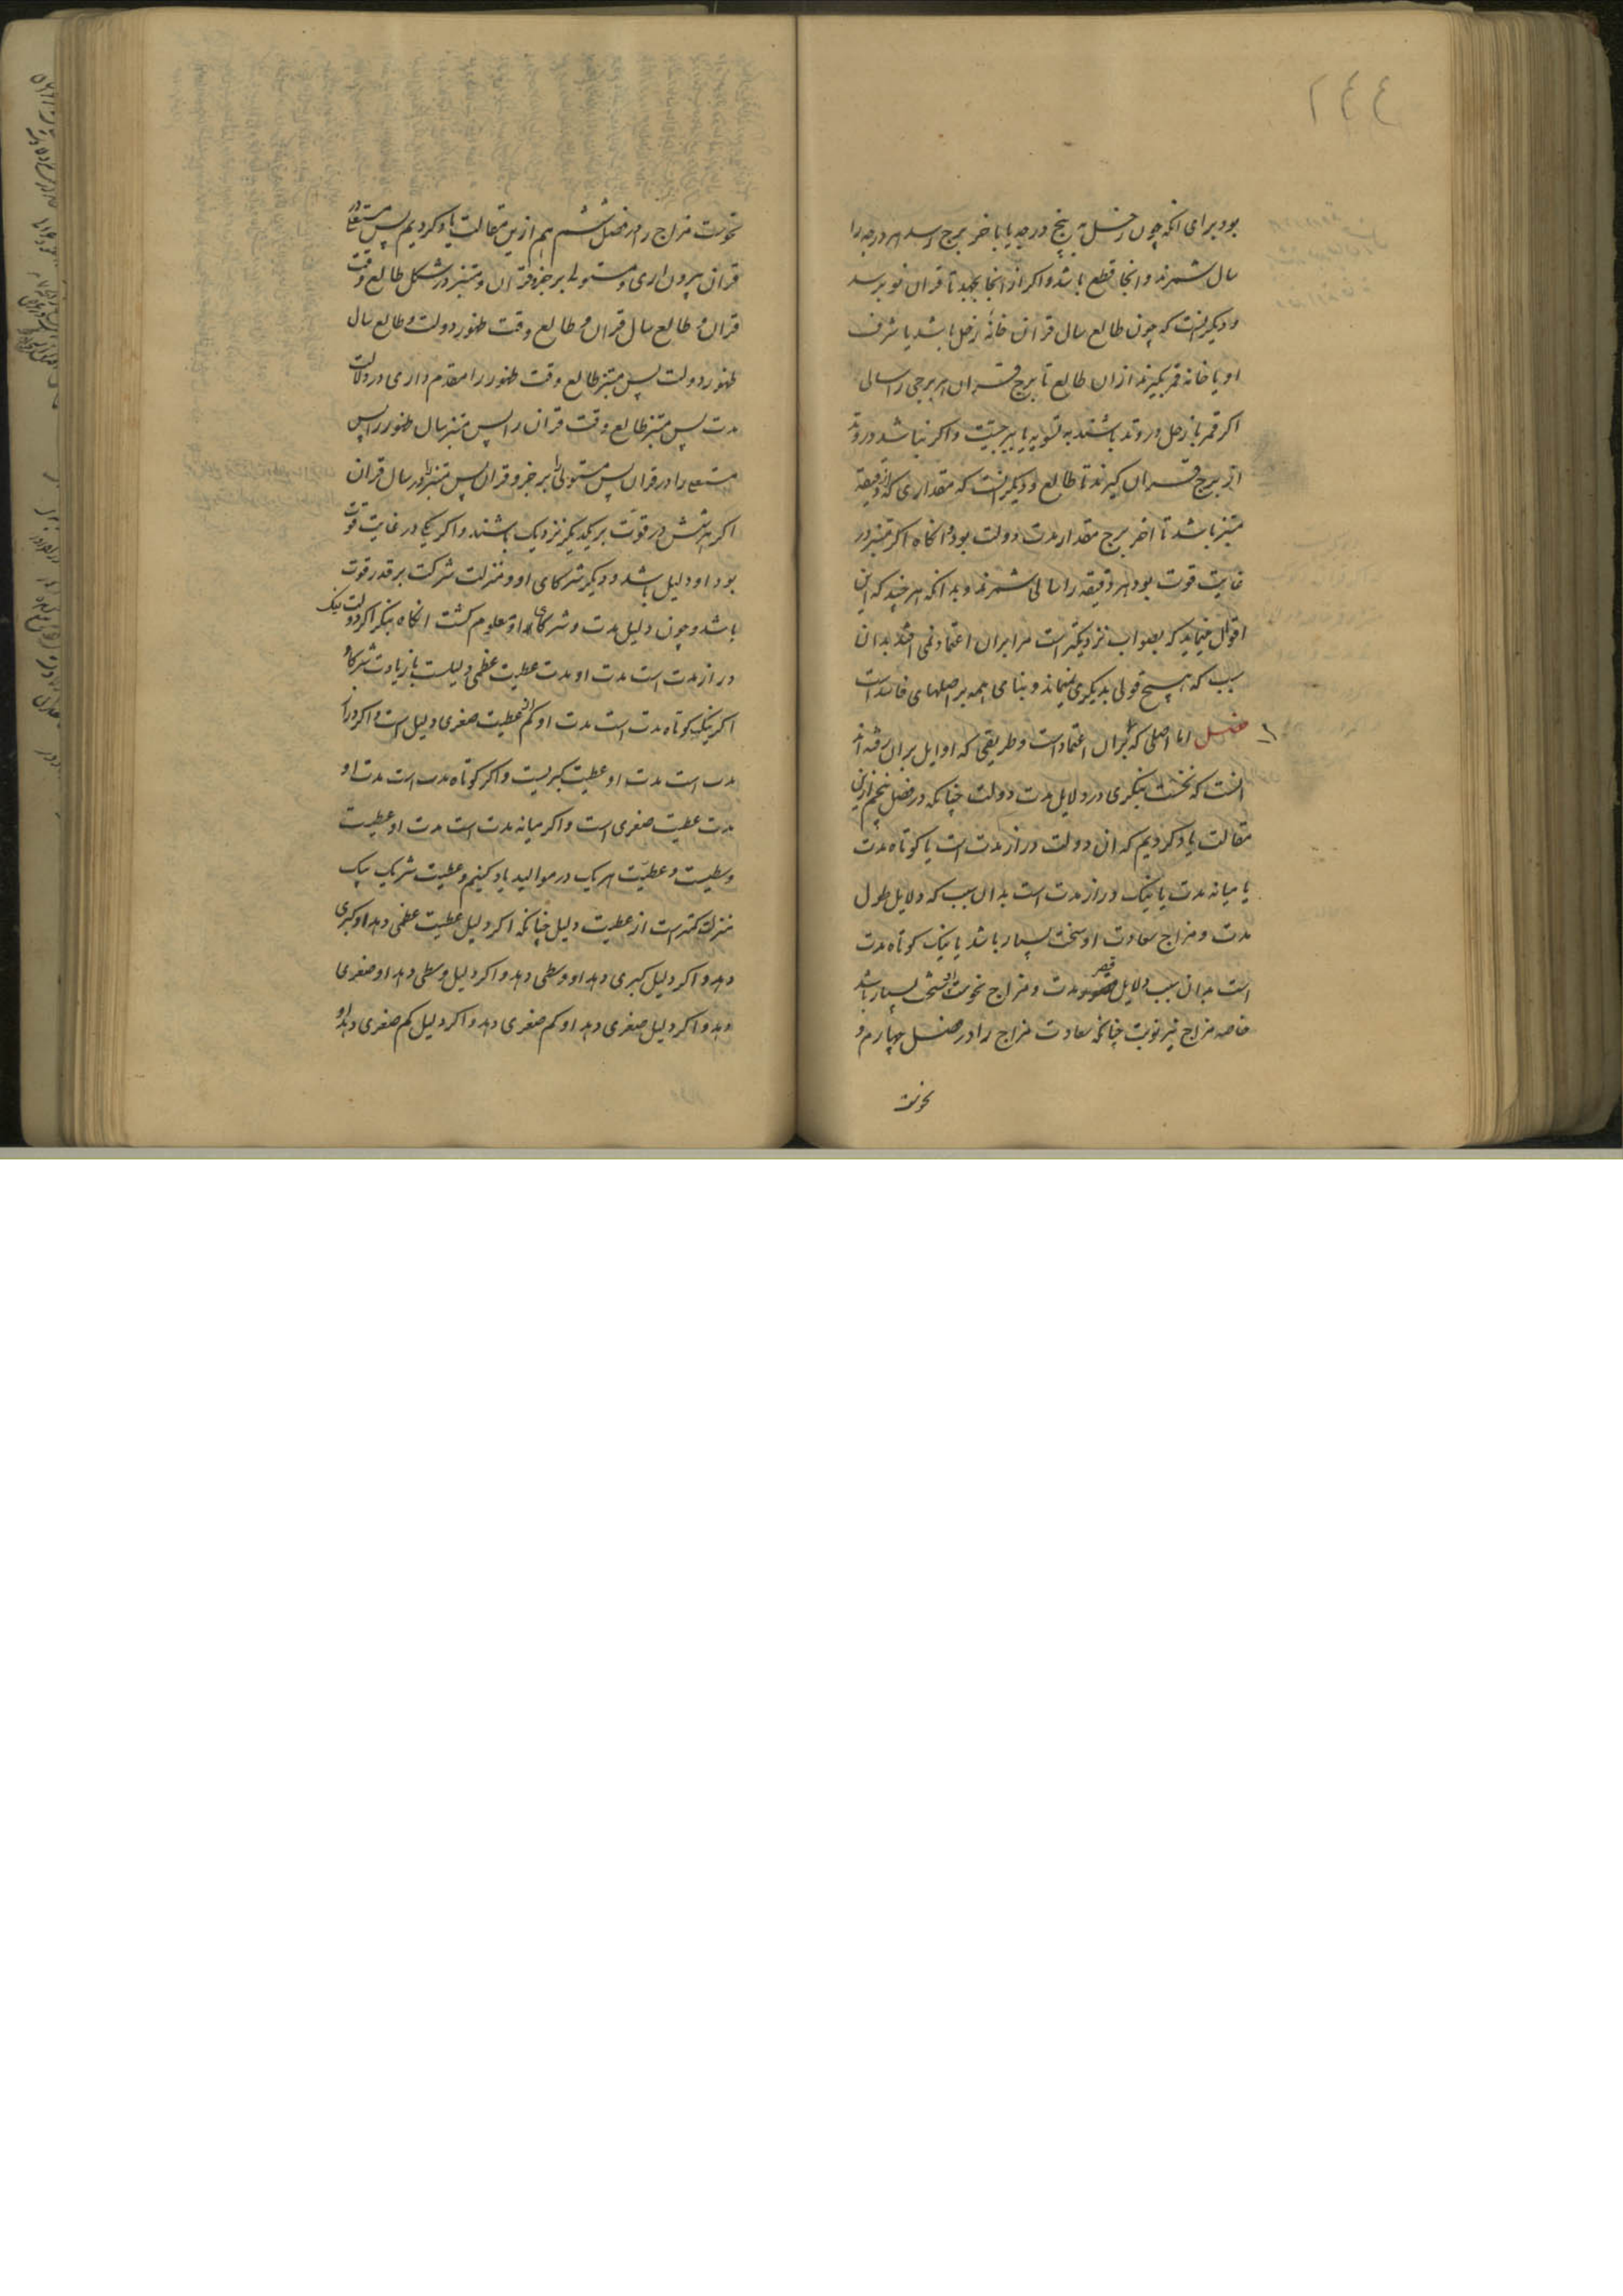 ٢٤٤
بود برای انکه چون زحل به پنج درجه یا باخر برج رسد هر درجه را
سال شمرند و انجا قطع باشد و اکر از انجا بجهد تا قران نو برسد
و دیکر انست که چون طالع سال قران خانه زحل باشد یا شرف
او یا خانه قمر بکیرند از ان طالع تا برج قران هر برجی را سالی
اکر قمر با زحل در وتد باشند به تسویه یا ببرجیت و اکر نباشد در وتد
از برج قران کیرند تا طالع و دیکر انست که مقداری که از دقیقه
مبتز باشد تا اخر برج مقدار مدت دولت بود و انکاه اکر مبتز در
غایت قوت بود هر دقیقه را سالی شمرند و بدانکه هر چند که این
اقوال مینماید که بصواب نزدیکتر است مرا بران اعتماد نمی افتد بدان
سبب که هیچ قولی بدیکری نمیماند و بنای همه بر اصلهای فاسد است
فصل اما اصلی که بران اعتماد است و طریقی که اوایل بران رفته اند
انست که نخست بنکری در دلایل مدت دولت چنانکه در فصل پنجم ازین
مقالت یاد کردیم که ان دولت دراز مدت است یا کوتاه مدت
یا میانه مدت یا نیک دراز مدت است بدان سبب که دلایل طول
مدت و مزاج سعادت او سخت بسیار باشد یا نیک کوتاه مدت
است بدان سبب دلایل قصر مدت و مزاج نحوست او سخت بسیار باشد
خاصه مزاج نیر نوبت چنانکه سعادت مزاج را در فصل چهارم و
نحوست
نحوست مزاج را در فصل ششم هم ازین مقالت یاد کردیم پس مستعلی در
قران بیرون اری و مستولی بر جزو قران و مبتز در شکل طالع وقت
قران و طالع سال قران و طالع وقت ظهور دولت و طالع سال
ظهور دولت پس مبتز طالع وقت ظهور را مقدم داری در دلالت
مدت پس مبتز طالع وقت قران را پس مبتز سال ظهور را پس
مستعلی را در قران پس مستولی را بر جزو قران پس مبتز را در سال قران
اکر هر شش در قوت بریکدیکر نزدیک باشند و اکر یکی در غایت قوت
بود او دلیل باشد و دیکر شرکای او و منزلت شرکت بر قدر قوت
باشد و چون دلیل مدت و شرکای او معلوم کشت انکاه بنکر اکر دولت نیک
دراز مدت است مدت او مدت عطیت عظمی دلیلست با زیادت شرکا و
اکر نیک کوتاه مدت است مدت او کم از عطیت صغری دلیل است و اکر دراز
مدت است مدت او عطیت کبریست و اکر کوتاه مدت است مدت او
مدت عطیت صغری است و اکر میانه مدت است مدت او عطیت
وسطیست و عطیت هر یک در موالید یاد کنیم و عطیت شریک بیک
منزلت کمتر است از عطیت دلیل چنانکه اکر دلیل عطیت عظمی دهد او کبری
دهد و اکر دلیل کبری دهد او وسطی دهد و اکر دلیل وسطی دهد او صغری
دهد و اکر دلیل صغری دهد او کم صغری دهد و اکر دلیل کم صغری دهد او